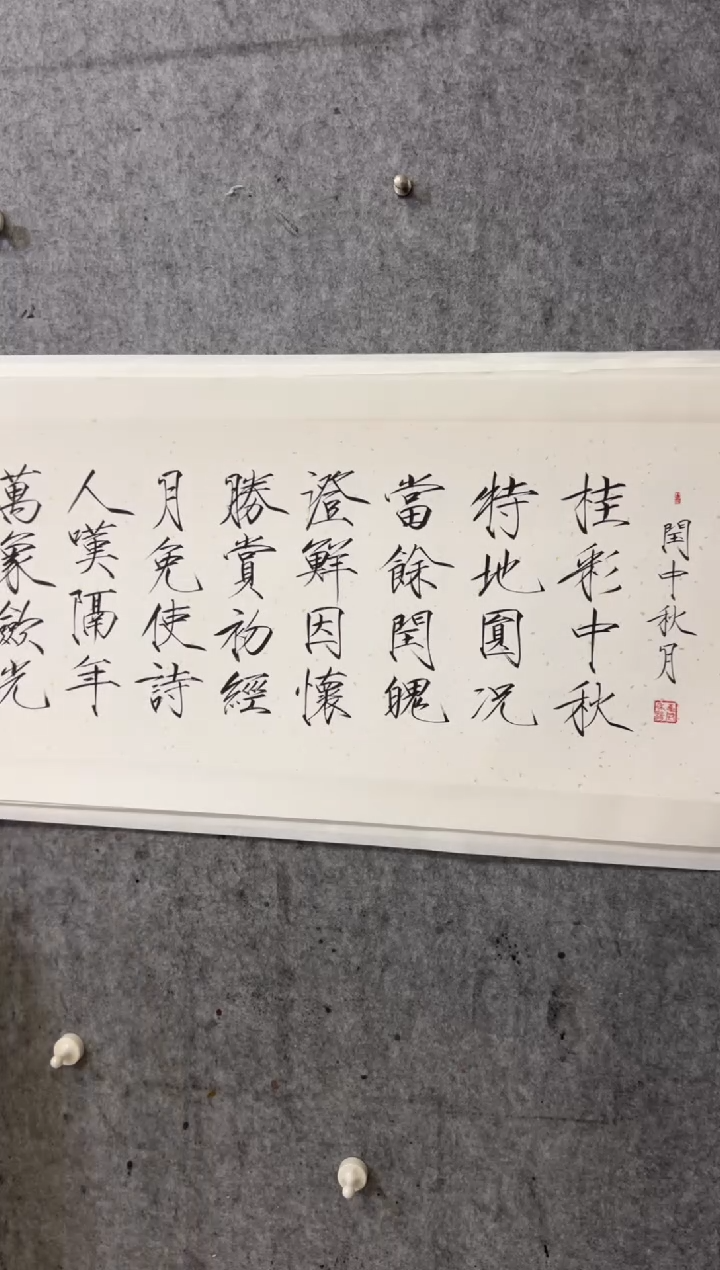 閏中秋月
桂彩中秋
特地圓况
當餘閏魄
澄鮮因懷
勝賞初經
月免使詩
人嘆隔年
萬象歛光